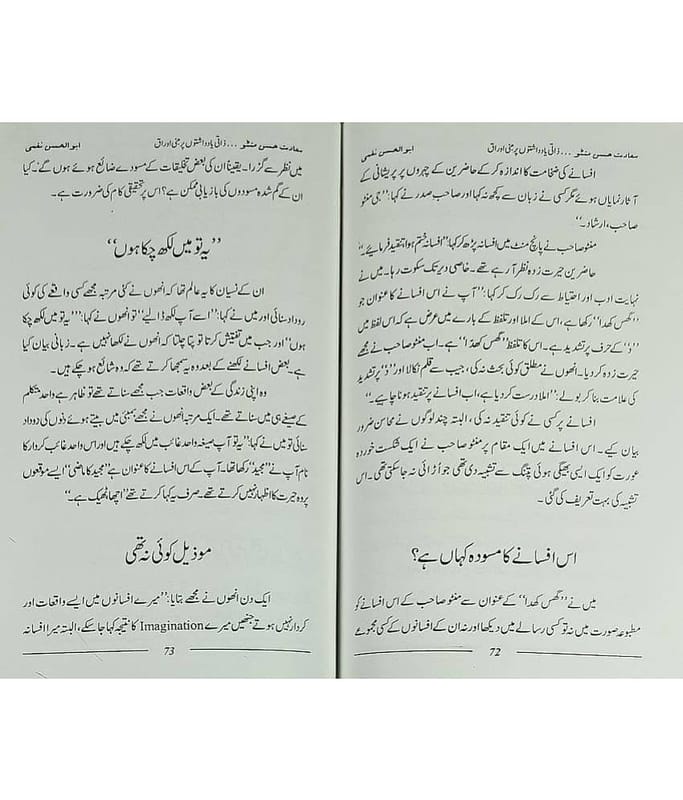 سعادت حسن منٹو ... ذاتی یادداشتوں پر مبنی اوراق ابوالحسن نغمی
افسانے کی ضخامت کا اندازہ کر کے حاضرین کے چہروں پر پریشانی کے
آثار نمایاں ہوئے مگر کسی نے زبان سے کچھ نہ کہا اور صاحب صدر نے کہا: ”جی منٹو
صاحب، ارشاد۔“
منٹو صاحب نے پانچ منٹ میں افسانہ پڑھ کر کہا: ”افسانہ ختم ہوا تنقید فرمائیے۔“
حاضرین حیرت زدہ نظر آ رہے تھے۔ خاصی دیر تک سکوت رہا۔ میں نے
نہایت ادب اور احتیاط سے رک رک کر کہا: ”آپ نے اس افسانے کا عنوان جو
”گھس کھدا“ رکھا ہے، اس کے املا اور تلفظ کے بارے میں عرض ہے کہ اس لفظ میں
”د“ کے حرف پر تشدید ہے۔ اس کا تلفظ ”گھس کھدّا“ ہے۔ اب منٹو صاحب نے مجھے
حیرت زدہ کر دیا۔ انھوں نے مطلق کوئی بحث نہ کی، جیب سے قلم نکالا اور ”د“ پر تشدید
کی علامت بنا کر بولے: ”املا درست کر دیا ہے، اب افسانے پر تنقید ہونا چاہیے۔“
افسانے پر کسی نے کوئی تنقید نہ کی، البتہ چند لوگوں نے محاسن ضرور
بیان کیے۔ اس افسانے میں ایک مقام پر منٹو صاحب نے ایک شکست خوردہ
عورت کو ایک ایسی بھیگی ہوئی پتنگ سے تشبیہ دی تھی جو اُڑائی نہ جا سکتی تھی۔ اس
تشبیہ کی بہت تعریف کی گئی۔
اس افسانے کا مسودہ کہاں ہے؟
میں نے ”گھس کھدا“ کے عنوان سے منٹو صاحب کے اس افسانے کو
مطبوعہ صورت میں نہ تو کسی رسالے میں دیکھا اور نہ ان کے افسانوں کے کسی مجموعے
72
سعادت حسن منٹو ... ذاتی یادداشتوں پر مبنی اوراق ابوالحسن نغمی
میں نظر سے گزرا۔ یقیناً ان کی بعض تخلیقات کے مسودے ضائع ہوئے ہوں گے۔ کیا
ان کے گم شدہ مسودوں کی بازیابی ممکن ہے؟ اس پر تحقیقی کام کی ضرورت ہے۔
”یہ تو میں لکھ چکا ہوں“
ان کے نسیان کا یہ عالم تھا کہ انھوں نے کئی مرتبہ مجھے کسی واقعے کی کوئی
روداد سنائی اور میں نے کہا: ”اسے آپ لکھ ڈالیے“ تو انھوں نے کہا: ”یہ تو میں لکھ چکا
ہوں“ اور جب میں تفتیش کرتا تو پتا چلتا کہ انھوں نے لکھا نہیں ہے۔ زبانی بیان کیا
ہے۔ بعض افسانے لکھنے کے بعد وہ یہ سمجھا کرتے تھے کہ وہ شائع ہو چکے ہیں۔
وہ اپنی زندگی کے بعض واقعات جب مجھے سناتے تھے تو ظاہر ہے واحد متکلم
کے صیغے ہی میں سناتے تھے۔ ایک مرتبہ انھوں نے مجھے بمبئی میں بیتے ہوئے دنوں کی روداد
سنائی تو میں نے کہا: ”یہ تو آپ صیغہ واحد غائب میں لکھ چکے ہیں اور اس واحد غائب کردار کا
نام آپ نے ”مجید“ رکھا تھا۔ آپ کے اس افسانے کا عنوان ہے ”مجید کا ماضی“ ایسے موقعوں
پر وہ حیرت کا اظہار نہیں کرتے تھے۔ صرف یہ کہا کرتے تھے ”اچھا ٹھیک ہے۔“
موذیل کوئی نہ تھی
ایک دن انھوں نے مجھے بتایا: ”میرے افسانوں میں ایسے واقعات اور
کردار نہیں ہوتے جنھیں میرے Imagination کا نتیجہ کہا جا سکے، البتہ میرا افسانہ
73